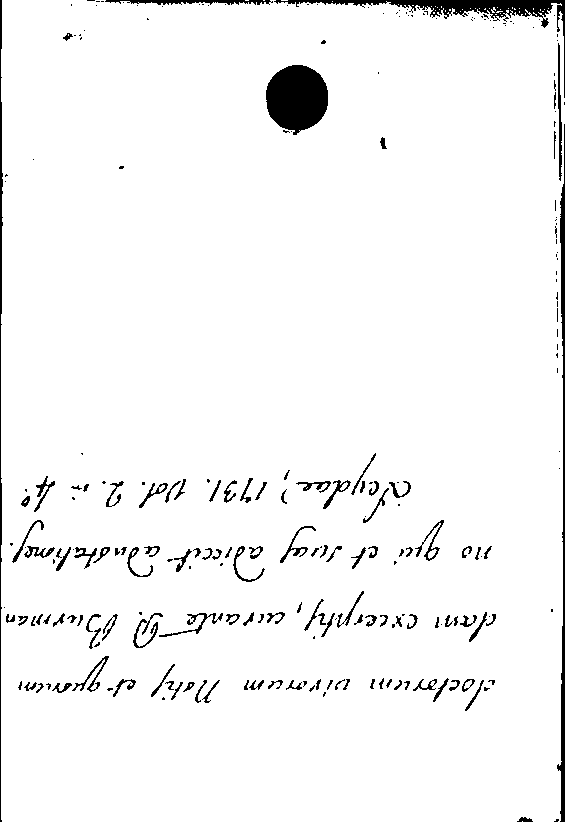 doctorum virorum Notis et quorum
dam excerptis, curante P. Burman
no qui et suas adiecit adnotationes.
Leydae, 1731. Vol. 2. in 4º.